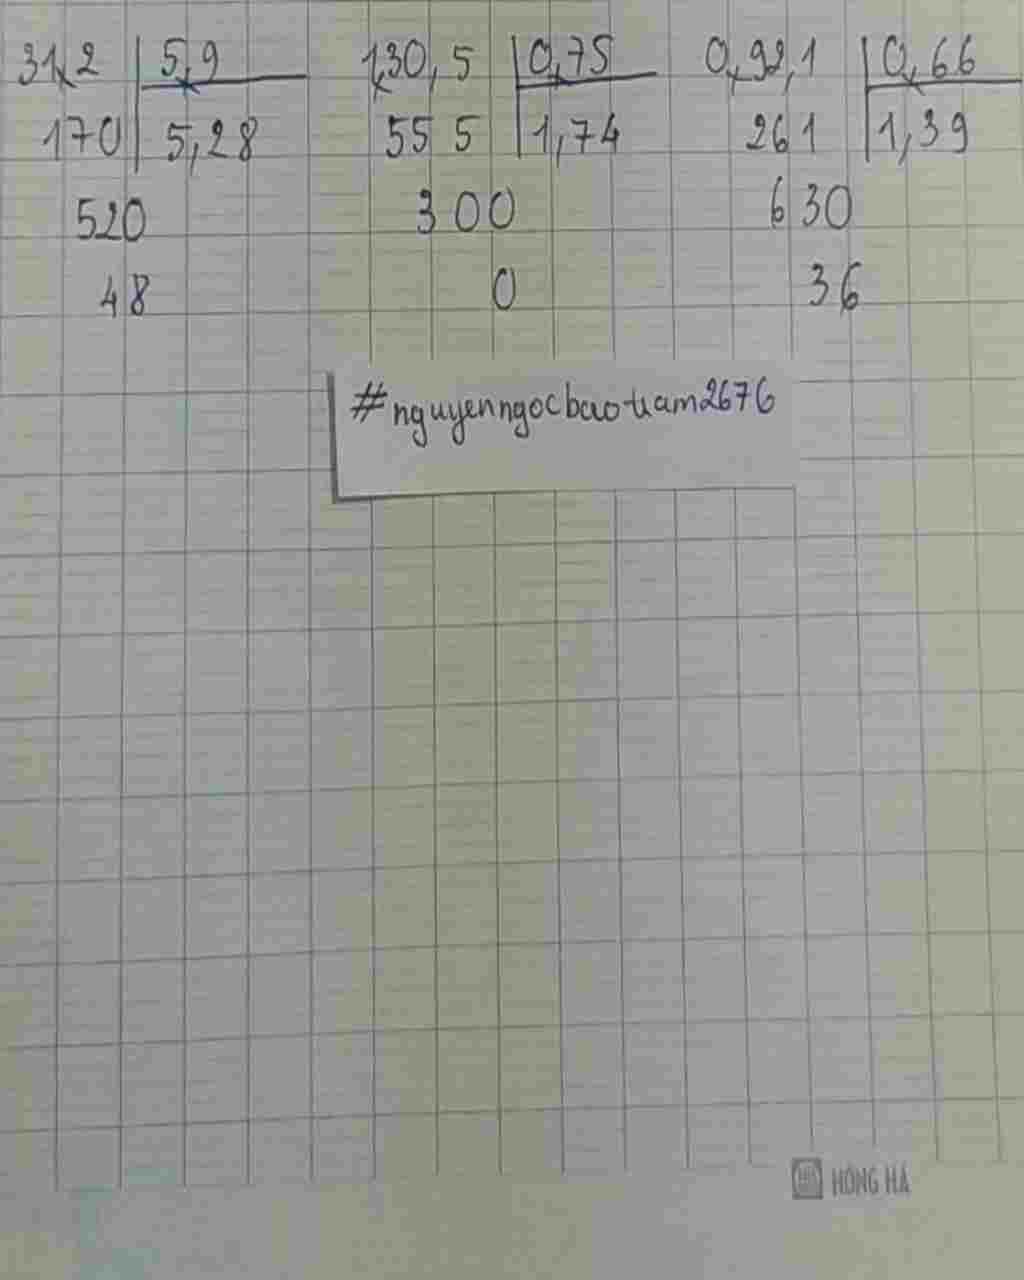 31,2 5,9 1,30,5 0,75 0,92,1 0,66
170 5,28 55 5 1,74 261 1,39
520 300 630
48 0 36
#nguyenngocbaotram2676
HỒNG HÀ